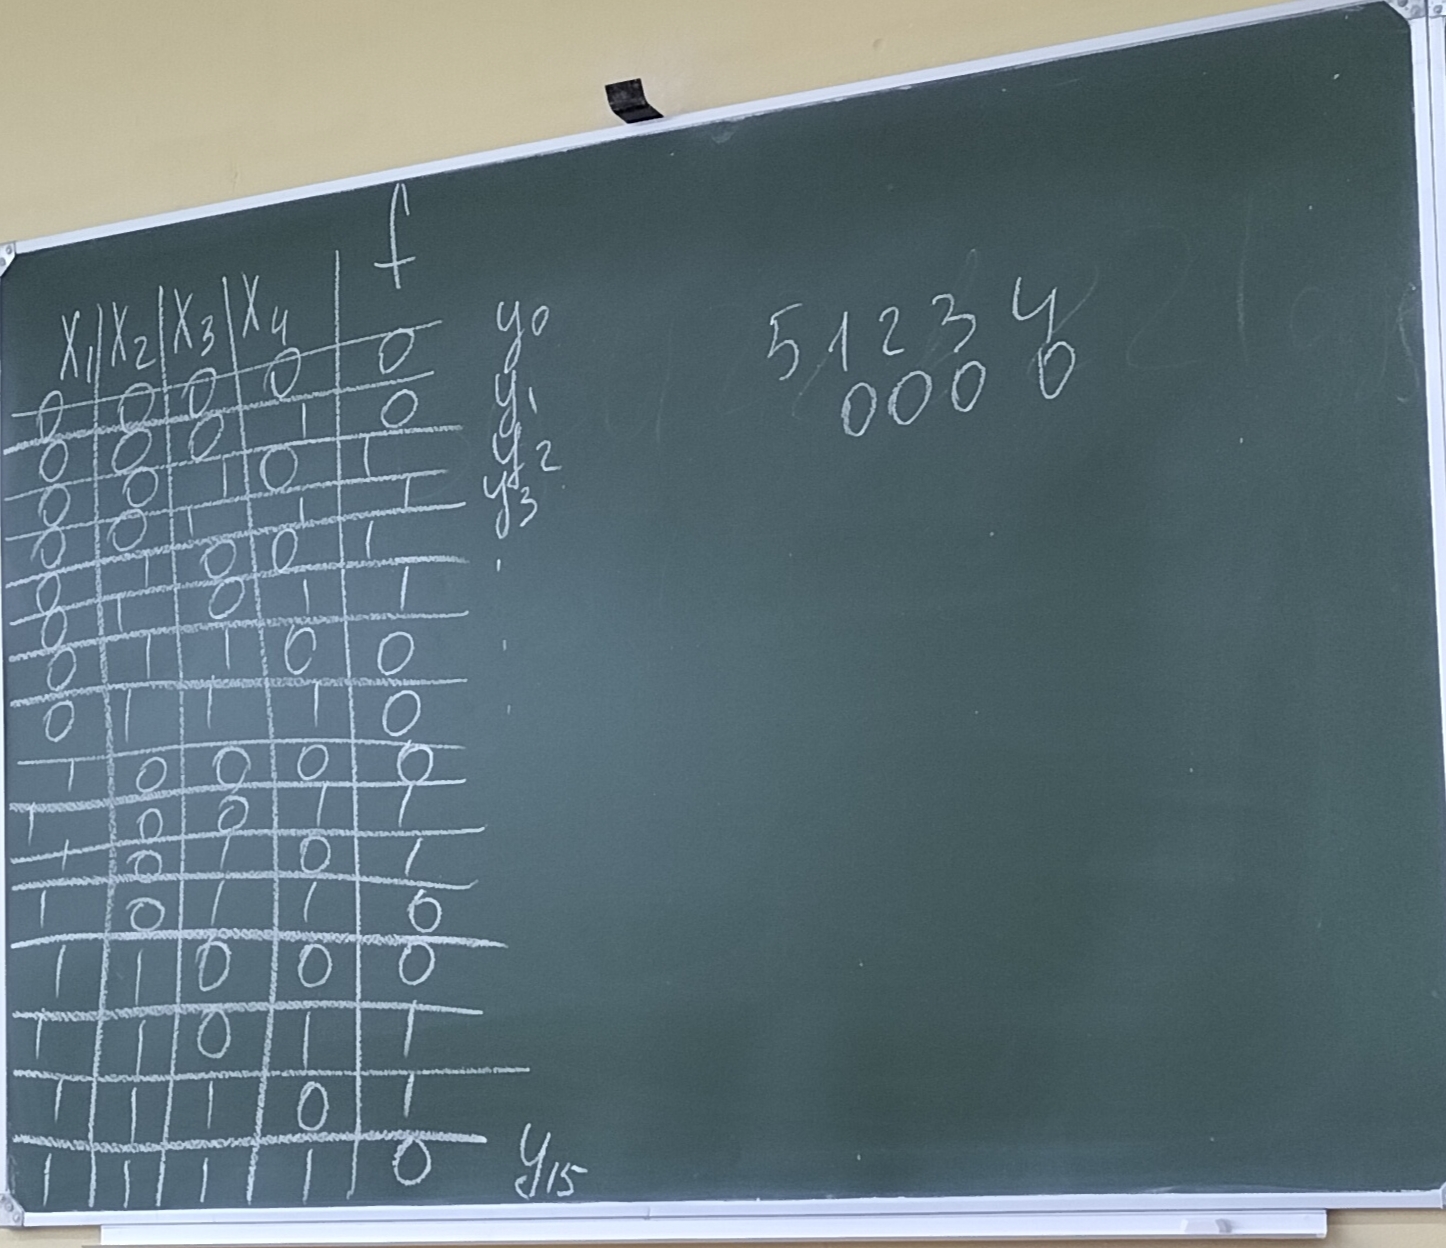 x₁ x₂ x₃ x₄ f
0 0 0 0 0 y₀
0 0 0 1 0 y₁
0 0 1 0 1 y₂
0 0 1 1 1 y₃
0 1 0 0 1
0 1 0 1 1
0 1 1 0 0
0 1 1 1 0
1 0 0 0 0
1 0 0 1 1
1 0 1 0 1
1 0 1 1 0
1 1 0 0 0
1 1 0 1 1
1 1 1 0 1
1 1 1 1 0 y₁₅
5 1 2 3 4
0 0 0 0